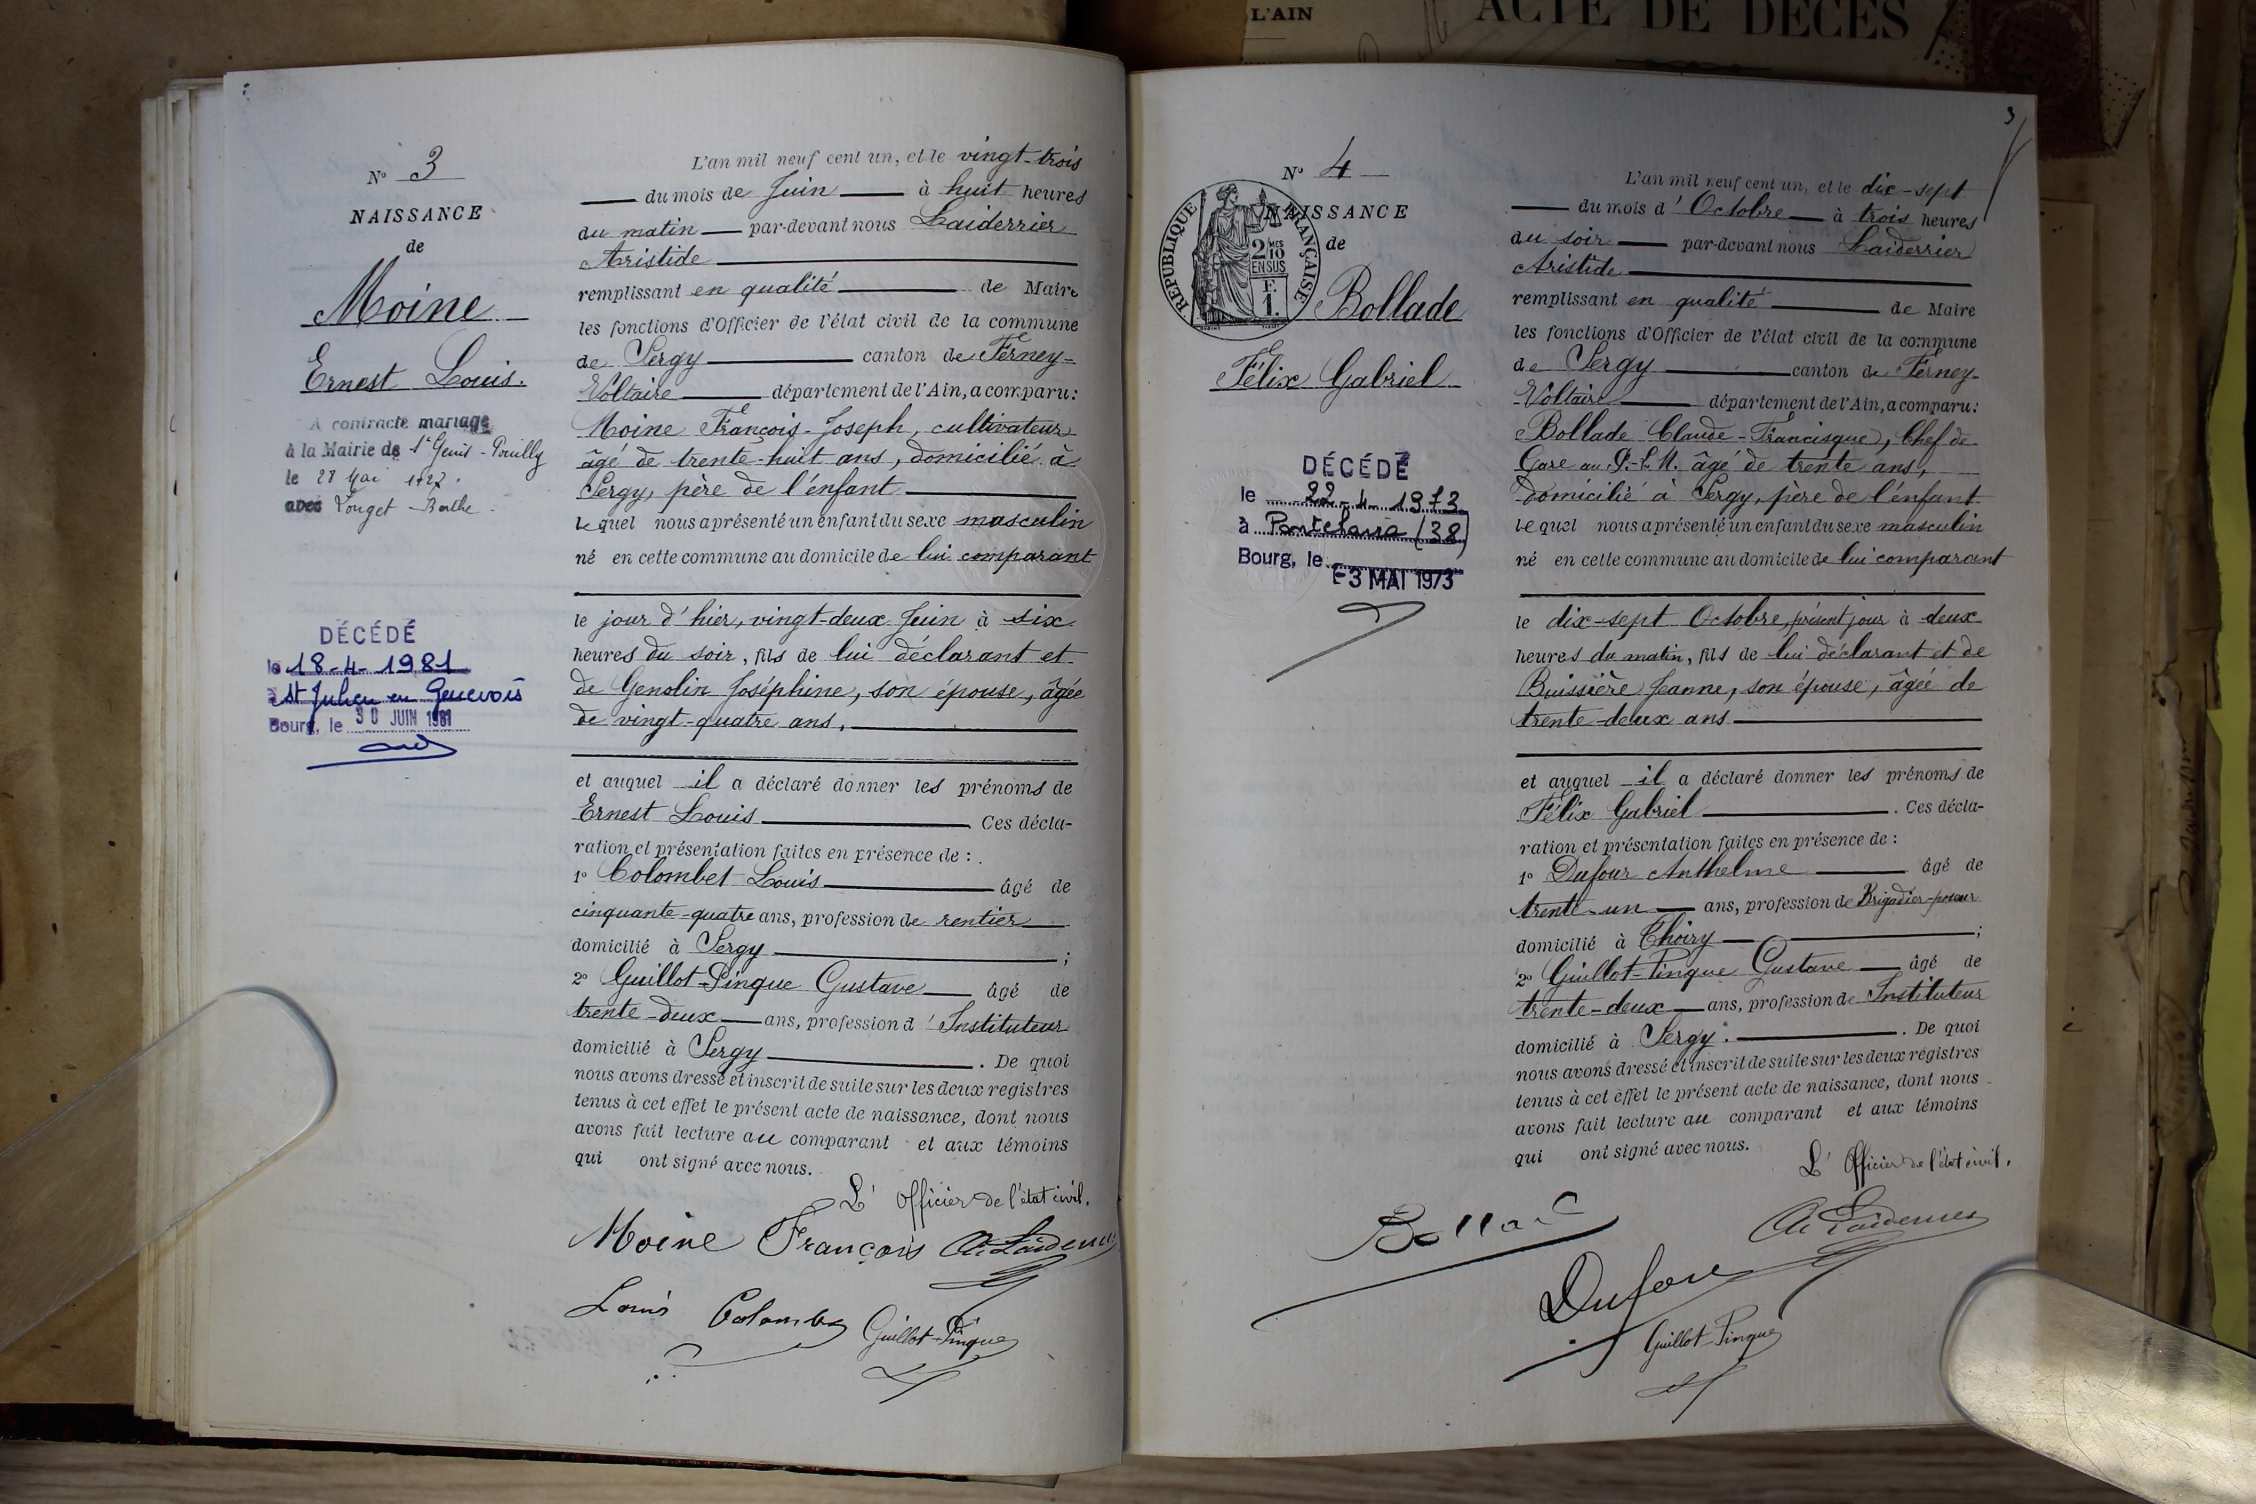 L'AIN
ACTE DE DÉCÈS
N° 3
NAISSANCE
de
Moine
Ernest Louis.
A contracté mariage
à la Mairie de St Genis-Pouilly
le 28 Mai
avec Vouget Berthe
DÉCÉDÉ
le 18-4-1981
à St Julien en Genevois
Bourg, le 30 JUIN 1981
L'an mil neuf cent un, et le vingt-trois
du mois de Juin à huit heures
du matin par-devant nous Laiderrier
Aristide
remplissant en qualité de Maire
les fonctions d'Officier de l'état civil de la commune
de Sergy canton de Ferney-
Voltaire département de l'Ain, a comparu:
Moine François-Joseph, cultivateur
âgé de trente-huit ans, domicilié à
Sergy, père de l'enfant
Lequel nous a présenté un enfant du sexe masculin
né en cette commune au domicile de lui comparant
le jour d'hier, vingt-deux Juin à six
heures du soir, fils de lui déclarant et
de Genolin Joséphine, son épouse, âgée
de vingt-quatre ans.
et auquel il a déclaré donner les prénoms de
Ernest Louis Ces décla-
ration et présentation faites en présence de :
1° Colombet Louis âgé de
cinquante-quatre ans, profession de rentier
domicilié à Sergy ;
2° Guillot-Pingue Gustave âgé de
trente-deux ans, profession d'Instituteur
domicilié à Sergy . De quoi
nous avons dressé et inscrit de suite sur les deux registres
tenus à cet effet le présent acte de naissance, dont nous
avons fait lecture au comparant et aux témoins
qui ont signé avec nous.
L'Officier de l'état civil.
Moine François
Louis Colombet Guillot-Pingue
3
N° 4
NAISSANCE
de
RÉPUBLIQUE FRANÇAISE
2 MES
10
EN SUS
F.
1.
Bollade
Félix Gabriel
DÉCÉDÉ
le 22-4-1973
à Pontcharra (38)
Bourg, le -3 MAI 1973
L'an mil neuf cent un, et le dix-sept
du mois d'Octobre à trois heures
du soir par-devant nous Laiderrier
Aristide
remplissant en qualité de Maire
les fonctions d'Officier de l'état civil de la commune
de Sergy canton de Ferney-
Voltaire département de l'Ain, a comparu:
Bollade Claude-Francisque, Chef de
Gare au P.-L.M. âgé de trente ans,
domicilié à Sergy, père de l'enfant
Lequel nous a présenté un enfant du sexe masculin
né en cette commune au domicile de lui comparant
le dix-sept Octobre, présent jour à deux
heures du matin, fils de lui déclarant et de
Buissière Jeanne, son épouse, âgée de
trente-deux ans
et auquel il a déclaré donner les prénoms de
Félix Gabriel . Ces décla-
ration et présentation faites en présence de :
1° Dufour Anthelme âgé de
trente-un ans, profession de Brigadier-poseur
domicilié à Thoiry ;
2° Guillot-Pingue Gustave âgé de
trente-deux ans, profession de Instituteur
domicilié à Sergy. . De quoi
nous avons dressé et inscrit de suite sur les deux registres
tenus à cet effet le présent acte de naissance, dont nous
avons fait lecture au comparant et aux témoins
qui ont signé avec nous.
L'Officier de l'état civil.
Dufour
Guillot-Pingue